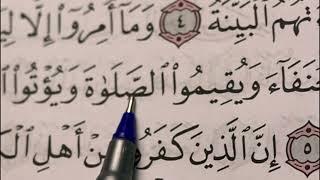 تْهُمُ ٱلْبَيِّنَةُ ٤ وَمَآ أُمِرُوٓا۟ إِلَّا
حُنَفَآءَ وَيُقِيمُوا۟ ٱلصَّلَوٰةَ وَيُؤْتُوا۟
٥ إِنَّ ٱلَّذِينَ كَفَرُوا۟ مِنْ أَهْلِ